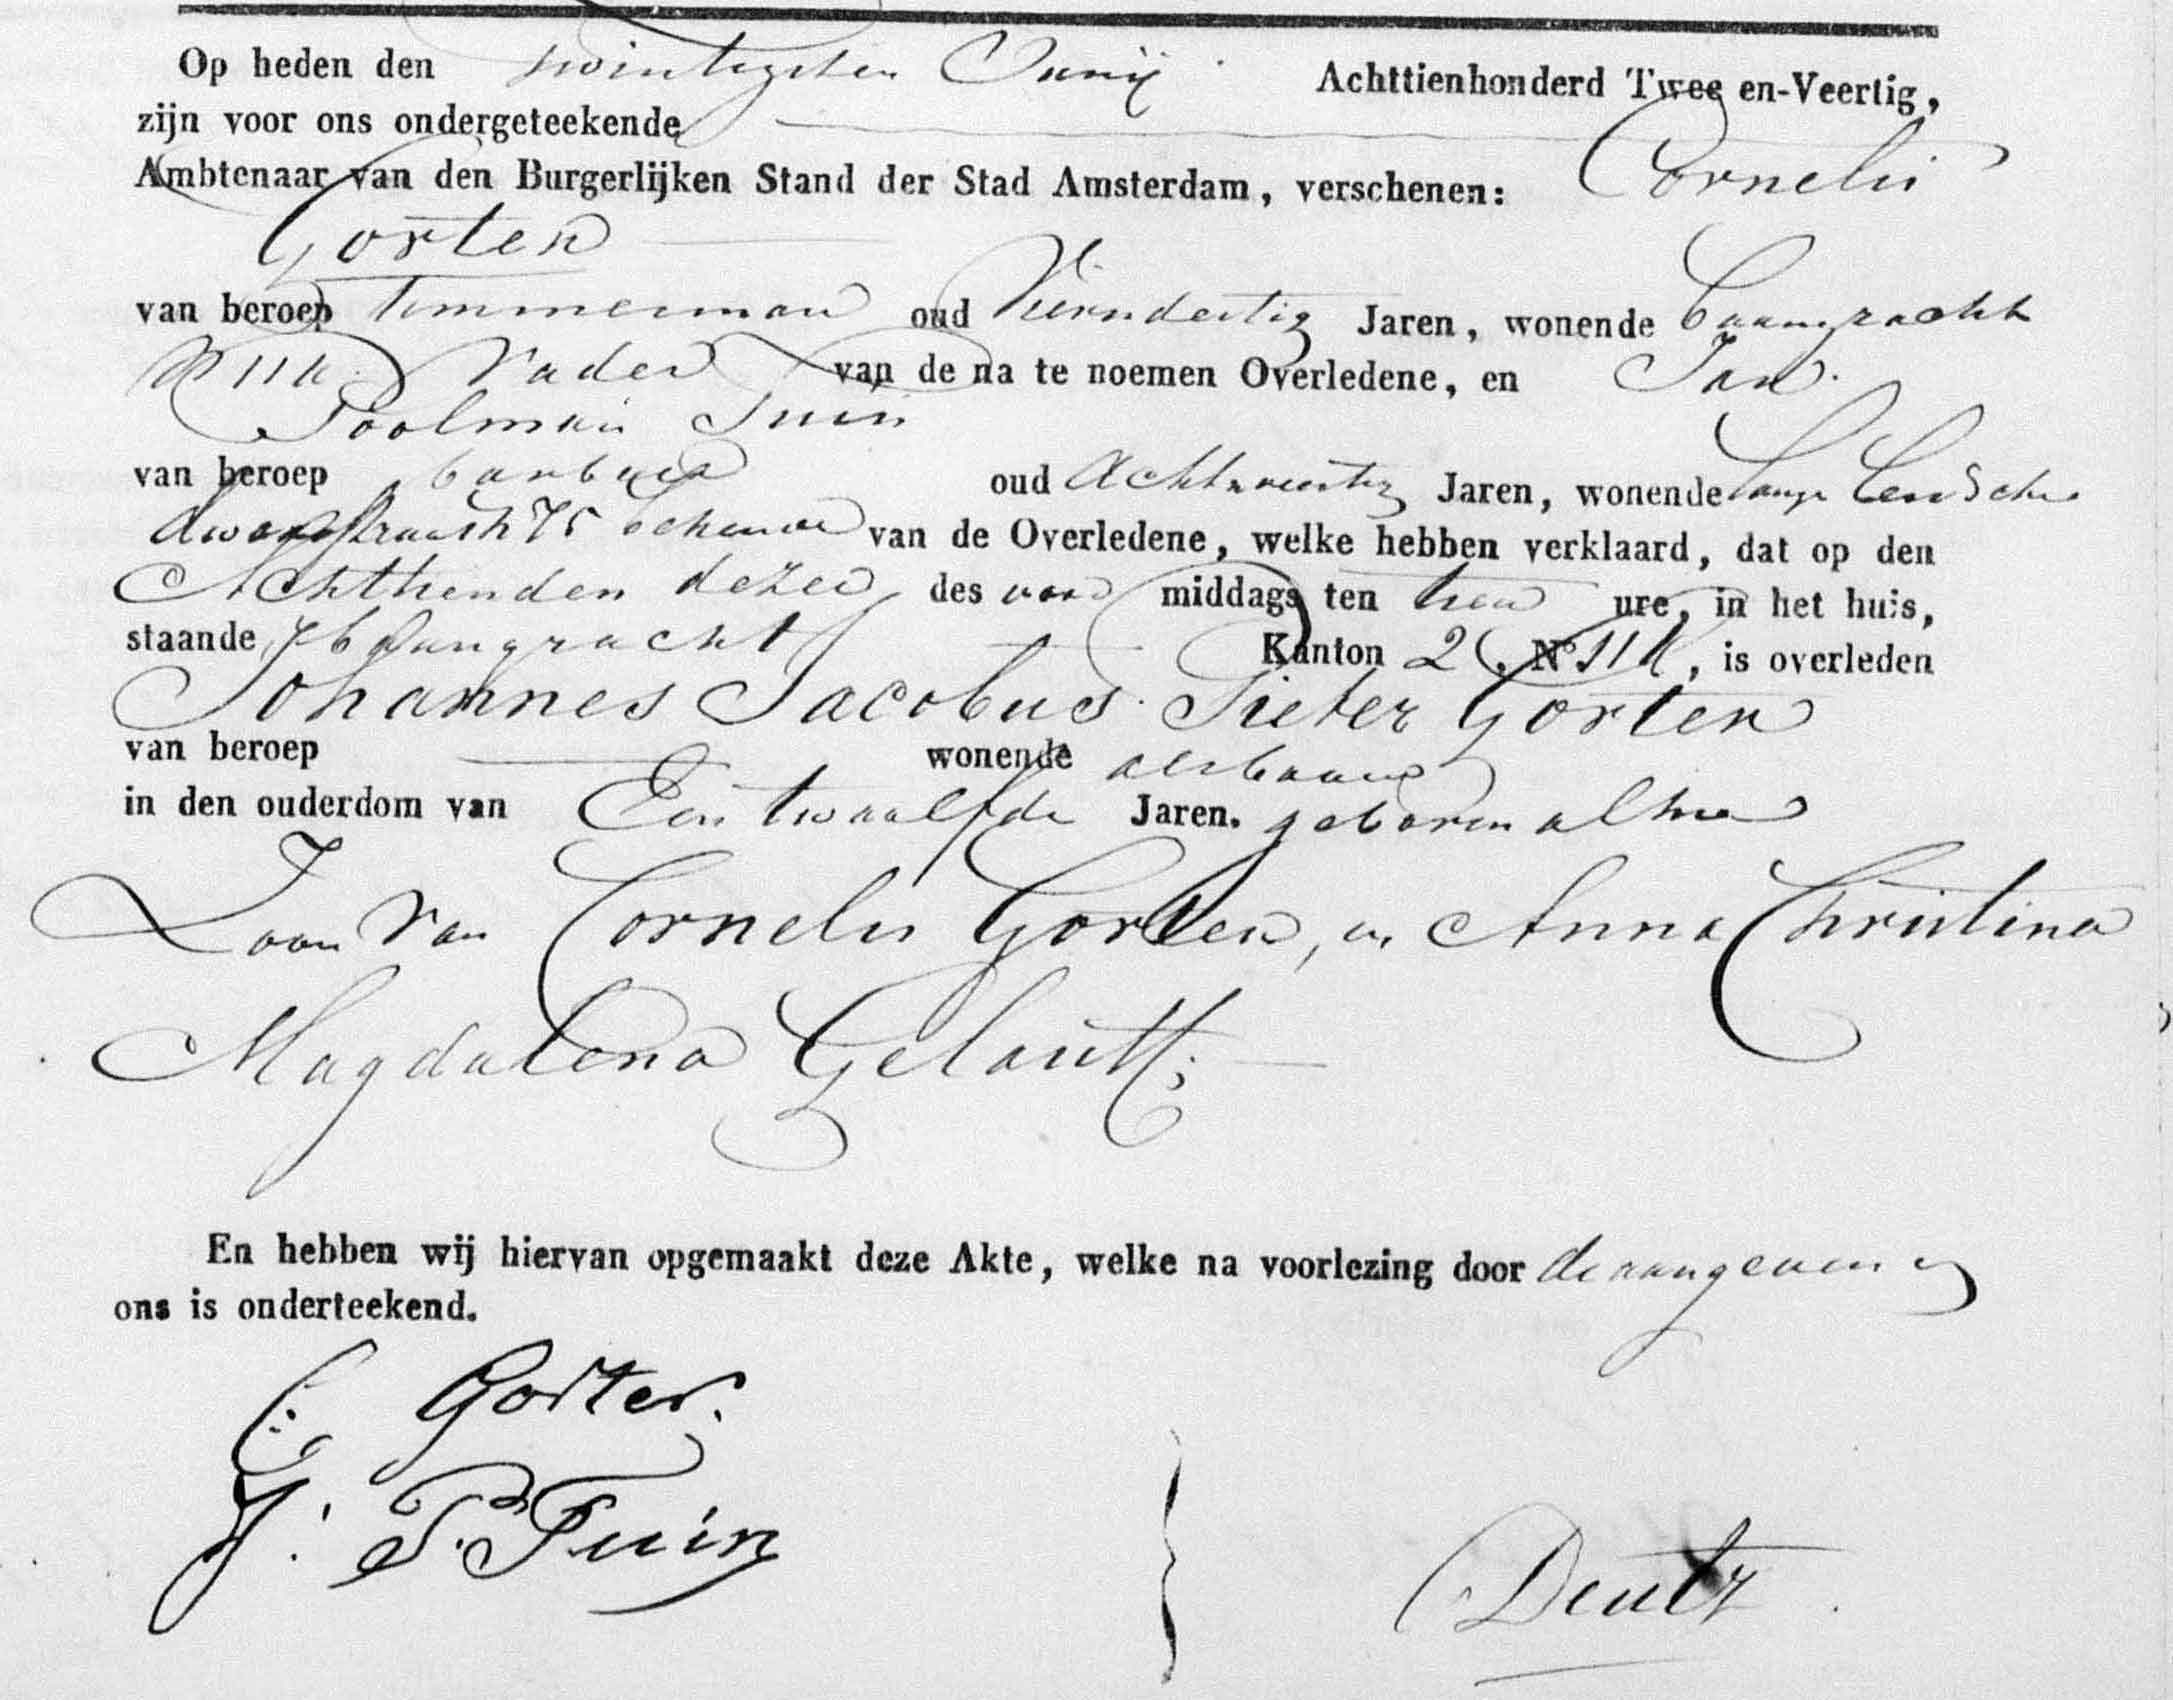 Op heden den twintigsten Junij Achttienhonderd Twee en-Veertig,
zijn voor ons ondergeteekende
Ambtenaar van den Burgerlijken Stand der Stad Amsterdam, verschenen: Cornelis
Gorter
van beroep timmerman oud Vierendertig Jaren, wonende Baangracht
N 11 K Vader van de na te noemen Overledene, en Jan
Poolman Tuin
van beroep barbier oud Achtenveertig Jaren, wonende Lange Leidsche
dwarsstraat N 75 bekende van de Overledene, welke hebben verklaard, dat op den
Achttienden dezer des voor middags ten tien ure, in het huis,
staande Baangracht Kanton 2, N° 11 K, is overleden
Johannes Jacobus Pieter Gorter
van beroep wonende aldaar
in den ouderdom van Een twaalfde Jaren. geboren alhier
Zoon van Cornelis Gorter, en Anna Christina
Magdalena Gelautt;
En hebben wij hiervan opgemaakt deze Akte, welke na voorlezing door de aangevers en
ons is onderteekend.
C. Gorter.
J. P. Tuin
Deutz